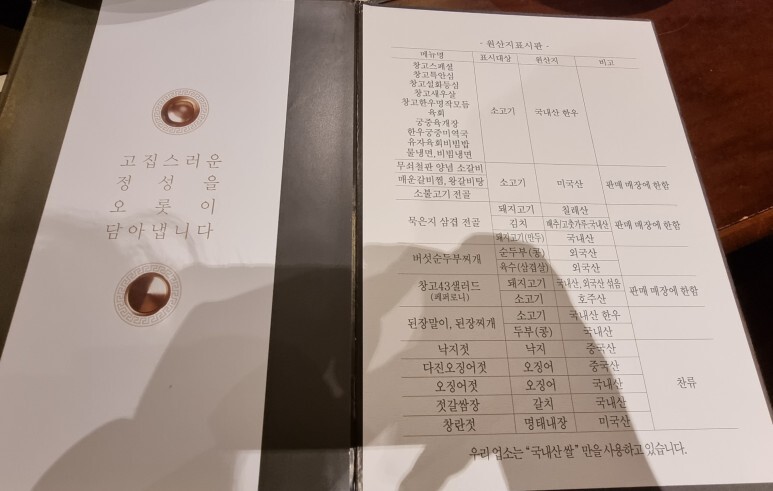 고집스러운
정성을
오롯이
담아냅니다
- 원산지표시판 -
메뉴명 표시대상 원산지 비고
창고스페셜
창고특안심
창고설화등심
창고새우살
창고한우명작모듬
육회
궁중육개장
한우궁중미역국
유자육회비빔밥
물냉면, 비빔냉면
소고기 국내산 한우
무쇠철판 양념 소갈비
매운갈비찜, 왕갈비탕
소불고기 전골
소고기 미국산 판매 매장에 한함
묵은지 삼겹 전골
돼지고기 칠레산
김치 배추/고춧가루:국내산
판매 매장에 한함
돼지고기(만두) 국내산
버섯순두부찌개
순두부(콩) 외국산
육수(삼겹살) 외국산
창고43샐러드
(페퍼로니)
돼지고기 국내산, 외국산 섞음
소고기 호주산
판매 매장에 한함
된장말이, 된장찌개
소고기 국내산 한우
두부(콩) 국내산
낙지젓 낙지 중국산
다진오징어젓 오징어 중국산
오징어젓 오징어 국내산
젓갈쌈장 갈치 국내산
창란젓 명태내장 미국산
찬류
우리 업소는 "국내산 쌀" 만을 사용하고 있습니다.